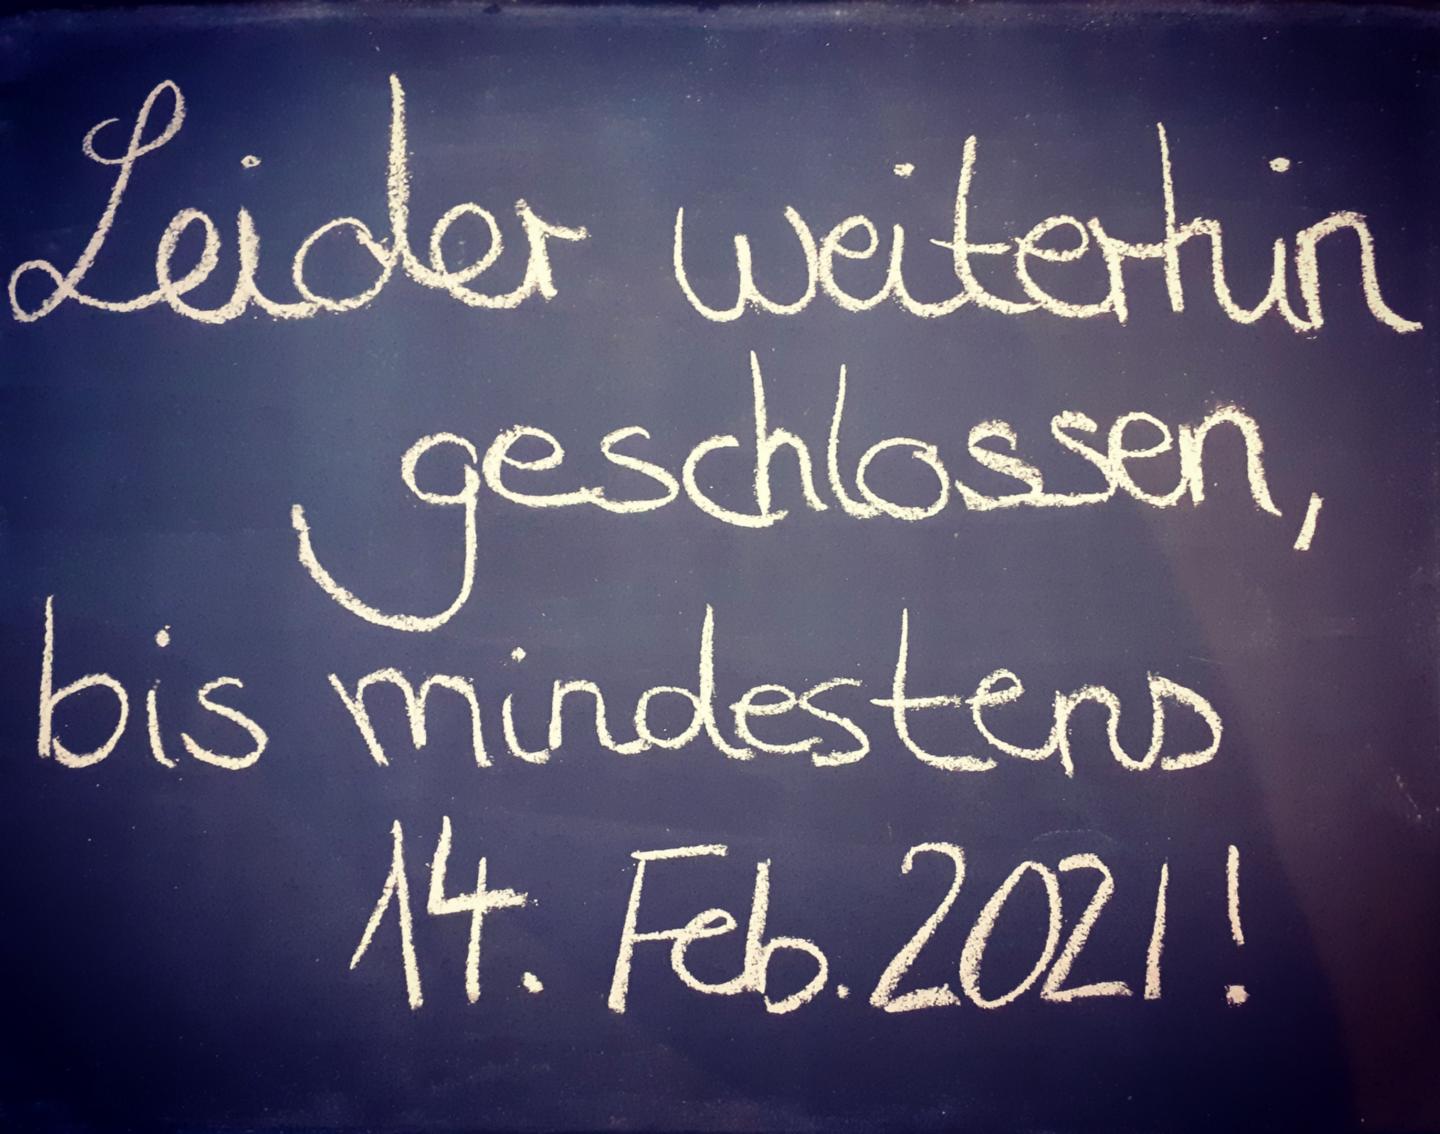 Leider weiterhin
geschlossen,
bis mindestens
14. Feb. 2021!